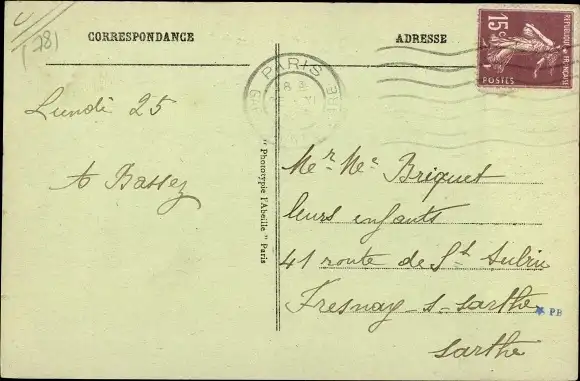 (78)
CORRESPONDANCE
ADRESSE
RÉPUBLIQUE FRANÇAISE
15c
POSTES
PARIS
Lundi 25
Bassez
Mr. Me Briquet
leurs enfants
41 route de St Aubin
Fresnay-s-sarthe
sarthe
"Phototypie l'Abeille" Paris
PB